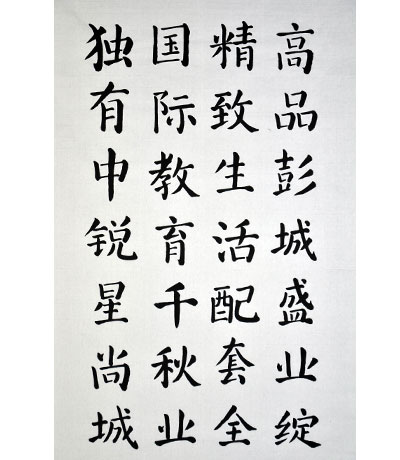 高品彭城盛业绽
精致生活配套全
国际教育千秋业
独有中锐星尚城